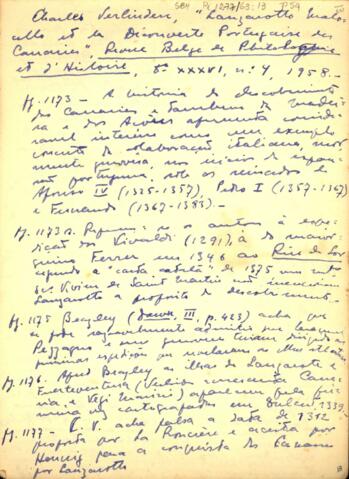 SBH Pc 1277/63:13 P.59
Charles Verlinden, "Lanzarotto Malo-
cello et la Découverte Portugaise des
Canaries", Revue Belge de Philologie
et d'Histoire, t. XXXVI, nº 4, 1958.-
pg. 1173 - A história do descobrimento
das Canárias e também da Madei-
ra e dos Açores apresenta
interesse como um exemplo
concreto de colaboração italiana,
mente genovesa, nos inícios da expansão
portuguesa, sob os reinados de
Afonso IV (1325-1357), Pedro I (1357-1367)
e Fernando (1367-1383).-
pg. 1173 n. Refere-se o autor à expe-
dição dos Vivaldi (1291), à do maior-
quino Ferrer em 1346 ao
segundo a "carta catalã" de 1375
Vivien de Saint Martin não menciona
Lanzarotto a propósito do descobrimento.-
pg. 1175 Beazley (Dawn, III, p. 423) acha que
se pode admitir que Lançarote
Pezagno e genoveses tenham dirigido as
primeiras expedições
pg. 1176. as ilhas de Lanzarote e
Fuerteventura
e Vegi Marini) aparecem pela pri-
meira vez cartografadas em Dulcert 1339.
pg. 1177 - C. V. acha falsa a data de 1312
proposta por La Roncière e aceita por
Hennig para a conquista das Canárias
por Lanzarotto